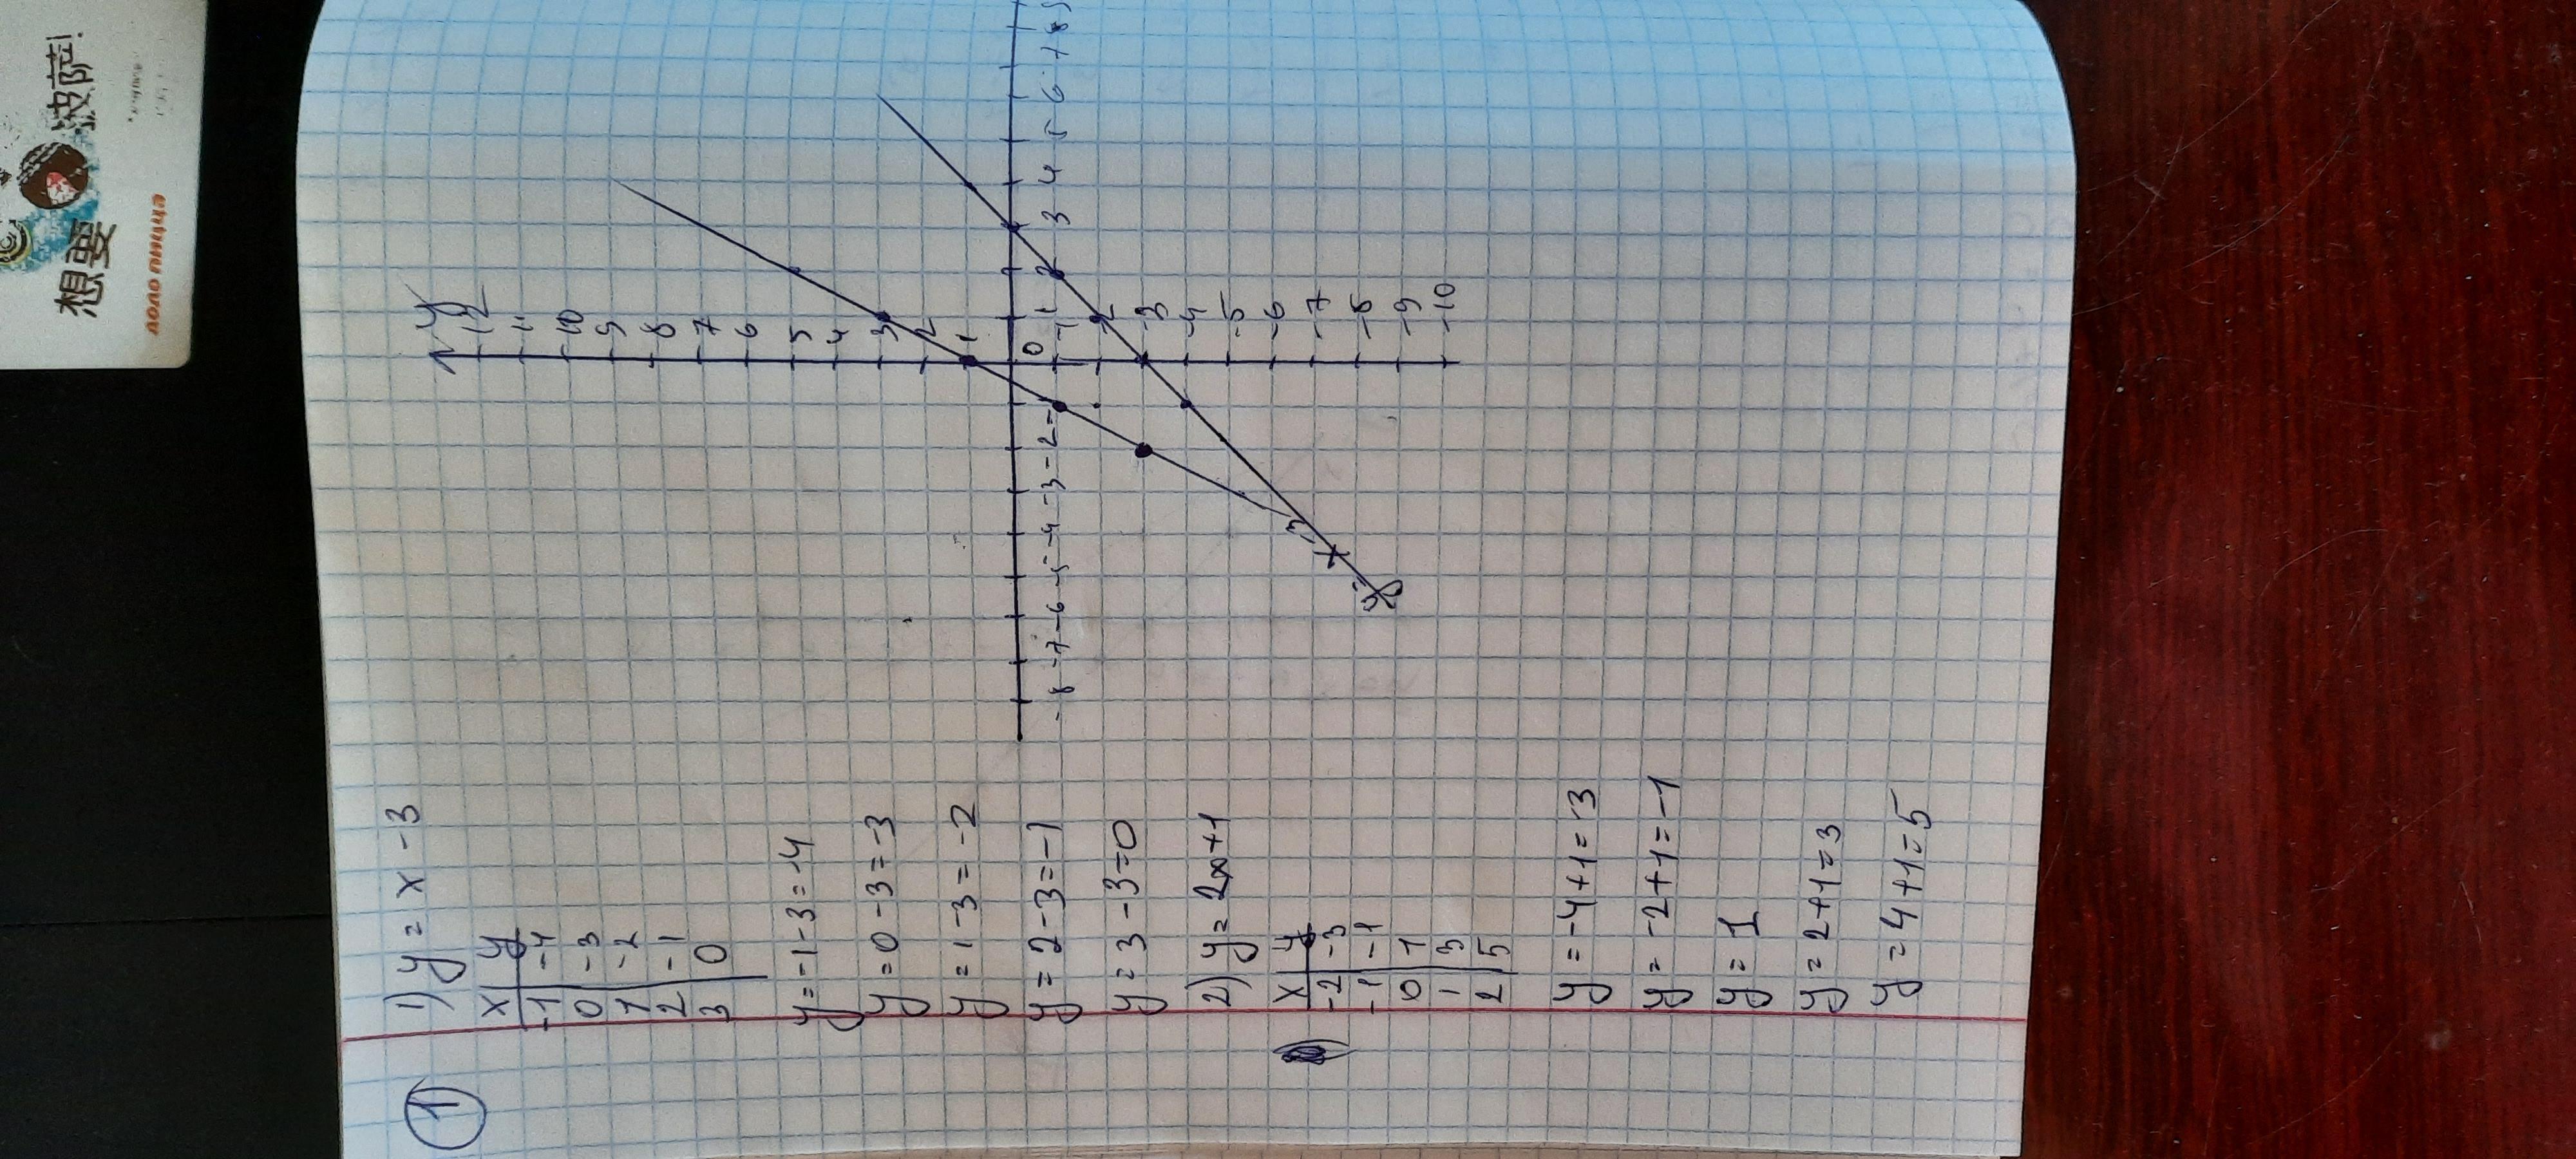 ①
1) y = x - 3
x y
-1 -4
0 -3
1 -2
2 -1
3 0
y = -1 - 3 = -4
y = 0 - 3 = -3
y = 1 - 3 = -2
y = 2 - 3 = -1
y = 3 - 3 = 0
2) y = 2x + 1
x y
-2 -3
-1 -1
0 1
1 3
2 5
y = -4 + 1 = -3
y = -2 + 1 = -1
y = 1
y = 2 + 1 = 3
y = 4 + 1 = 5
y
12
11
10
9
8
7
6
5
4
3
2
1
-8 -7 -6 -5 -4 -3 -2 -1 0 1 2 3 4 5 6 7 8 9
-1
-2
-3
-4
-5
-6
-7
-8
-9
-10
想要
菠萝!